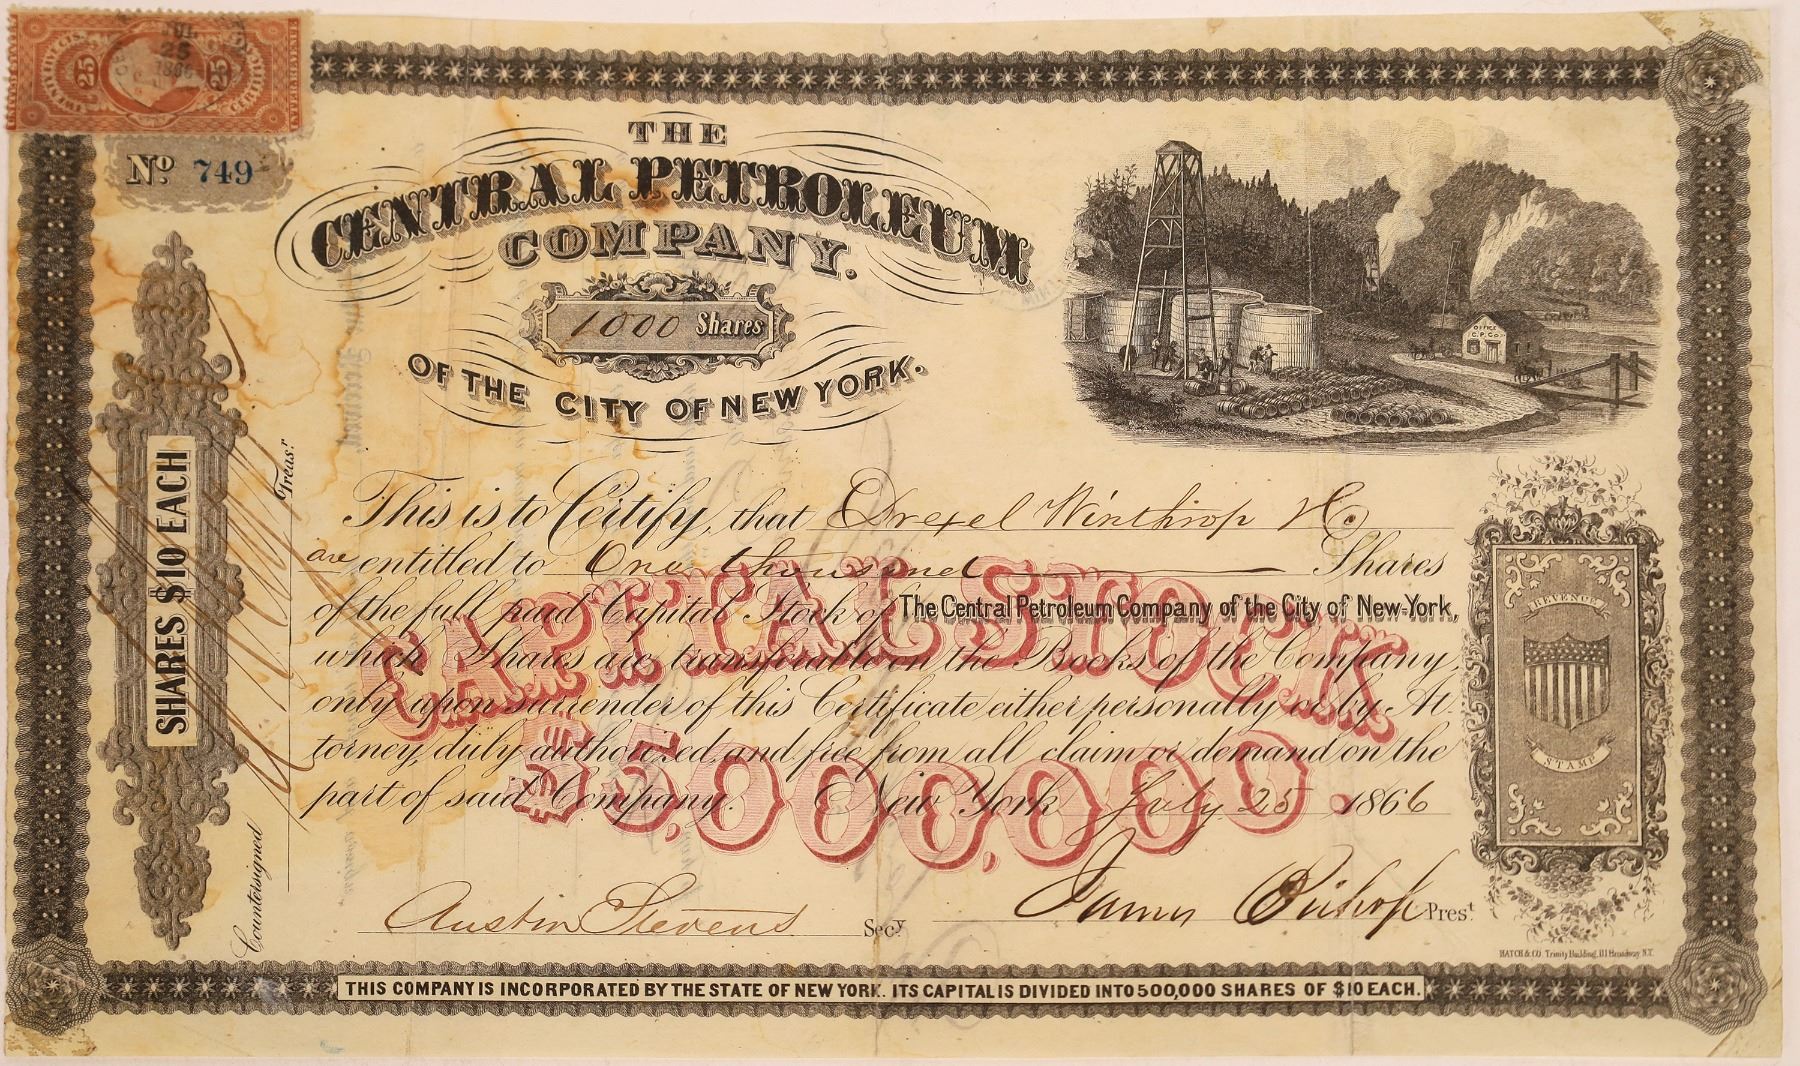 25 25
CERTIFICATE
JUL
25
1866
No 749
THE
CENTRAL PETROLEUM
COMPANY.
1000 Shares
OF THE CITY OF NEW YORK.
OFFICE
C.P.Co.
SHARES $10 EACH
Countersigned
Treasr.
This is to Certify, that Drexel Winthrop & Co
are entitled to One thousand Shares
of the full paid Capital Stock of The Central Petroleum Company of the City of New-York,
which Shares are transferable on the Books of the Company,
only upon surrender of this Certificate either personally or by At-
torney, duly authorized, and free from all claim or demand on the
part of said Company. New York July 25 1866
CAPITAL STOCK
$5,000,000.
REVENUE
STAMP
Austin Stevens Secy
James Bishop Prest
HATCH & CO. Trinity Building, 111 Broadway N.Y.
THIS COMPANY IS INCORPORATED BY THE STATE OF NEW YORK. ITS CAPITAL IS DIVIDED INTO 500,000 SHARES OF $10 EACH.